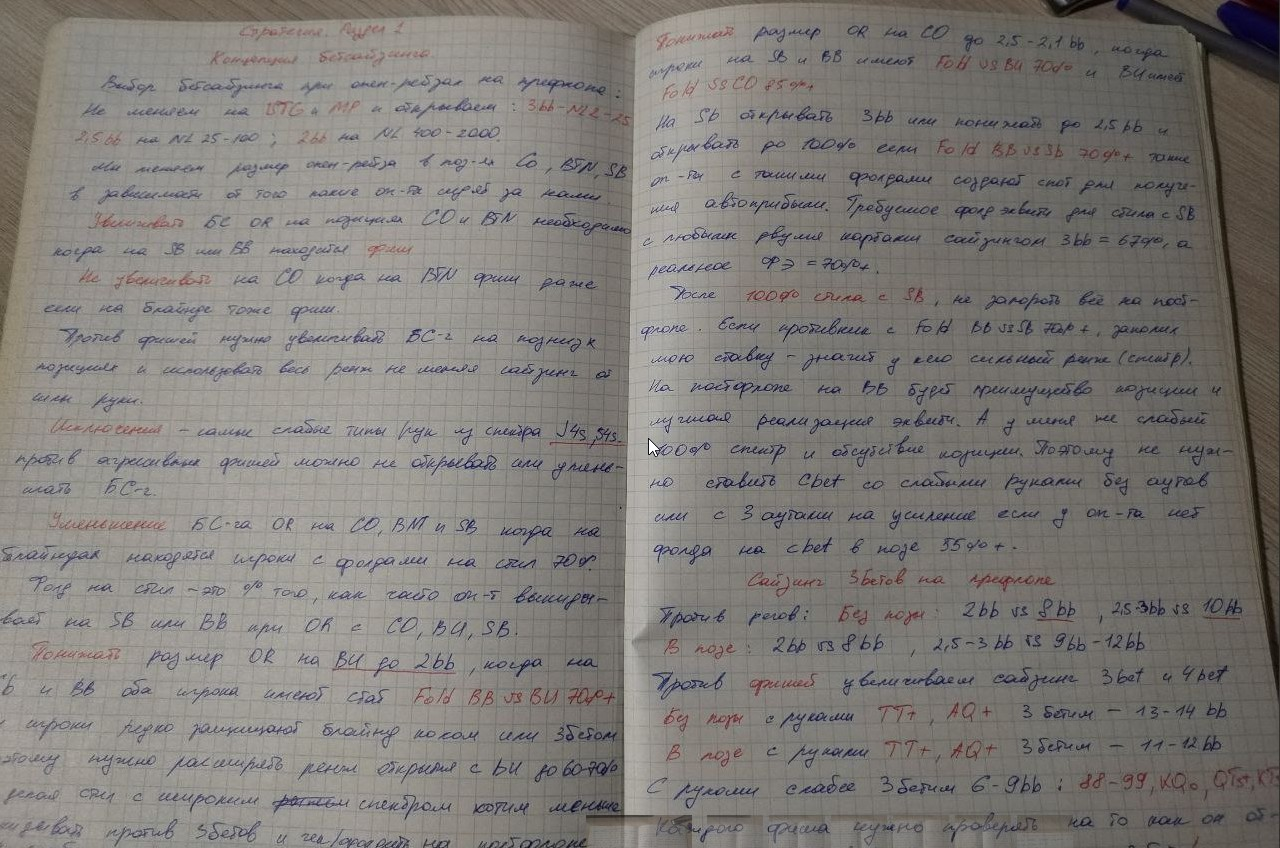 Стратегия. Аудит 1
Концепция бетсайзинга.
Выбор бетсайзинга при опен-рейзах на префлопе:
Не меняем на UTG и MP и открываем: 3bb-NL2-25
2,5bb на NL 25-100; 2bb на NL 400-2000.
Мы меняем размер опен-рейза в поз-ях Co, BTN, SB
в зависимости от того какие оп-ты сидят за нами
Увеличивать БС OR на позициях CO и BTN необходимо
когда на SB или BB находится фиш
Не увеличивать на CO когда на BTN фиш даже
если на блайнде тоже фиш.
Против фишей нужно увеличивать БС-г на поздних
позициях и использовать весь ренж не меняя сайзинг от
силы руки.
Исключения - самые слабые типы рук из спектра J4s, 94s.
против агрессивных фишей можно не открывать или умень-
шать БС-г.
Уменьшение БС-га OR на CO, BM и SB когда на
блайндах находятся игроки с фолдами на стил 70%.
Фолд на стил - это % того, как часто оп-т выкиды-
вает на SB или BB при OR с CO, BU, SB.
Понижать размер OR на BU до 2bb, когда на
и BB оба игрока имеют стат Fold BB vs BU 70%+
игроки редко защищают блайнд колом или 3бетом
этому нужно расширять ренж открытия с BU до 60-70%
стил с широким спектром хотим меньше
против 3бетов и чек/фолдить на постфлопе
Понижать размер OR на CO до 2,5-2,1bb, когда
игроки на SB и BB имеют Fold vs BU 70% и BU имеет
Fold vs CO 85%+
На Sb открывать 3bb или понижать до 2,5bb и
открывать до 100% если Fold BB vs Sb 70%+ такие
оп-ты с такими фолдами создают спот для получе-
ния автоприбыли. Требуемое фолд эквити для стила с SB
с любыми двумя картами сайзингом 3bb = 67%, а
реальное ФЭ = 70%+.
После 100% стила с SB, не запороть всё на пост-
флопе. Если противник с Fold BB vs SB 70%+, заколил
мою ставку - значит у него сильный ренж (спектр).
На постфлопе на BB будет преимущество позиции и
лучшая реализация эквити. А у меня же слабый
100% спектр и отсутствие позиции. Поэтому не нуж-
но ставить Cbet со слабыми руками без аутов
или с 3 аутами на усиление если у оп-та нет
фолда на cbet в позе 55%+.
Сайзинг 3бетов на префлопе
Против регов: Без позы: 2bb vs 8bb, 2,5-3bb vs 10bb
В позе: 2bb vs 8bb, 2,5-3bb vs 9bb-12bb
Против фишей увеличиваем сайзинг 3bet и 4bet
Без позы с руками TT+, AQ+ 3бетим - 13-14 bb
В позе с руками TT+, AQ+ 3бетим - 11-12bb
С руками слабее 3бетим 6-9bb: 88-99, KQo, QTs+,
Каждого фиша нужно проверять на то как он от-